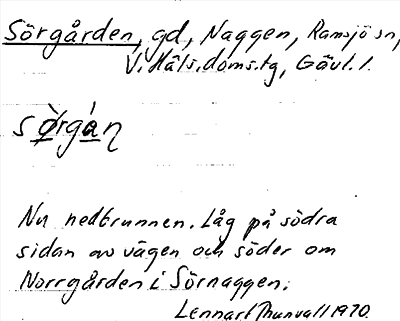 Sörgården, gd, Naggen, Ramsjö sn,
V. Häls. doms.tg, Gävl. l.
sòrgán
Nu nedbrunnen. Låg på södra
sidan av vägen och söder om
Norrgården i Sörnaggen.
Lennart Thunvall 1970.